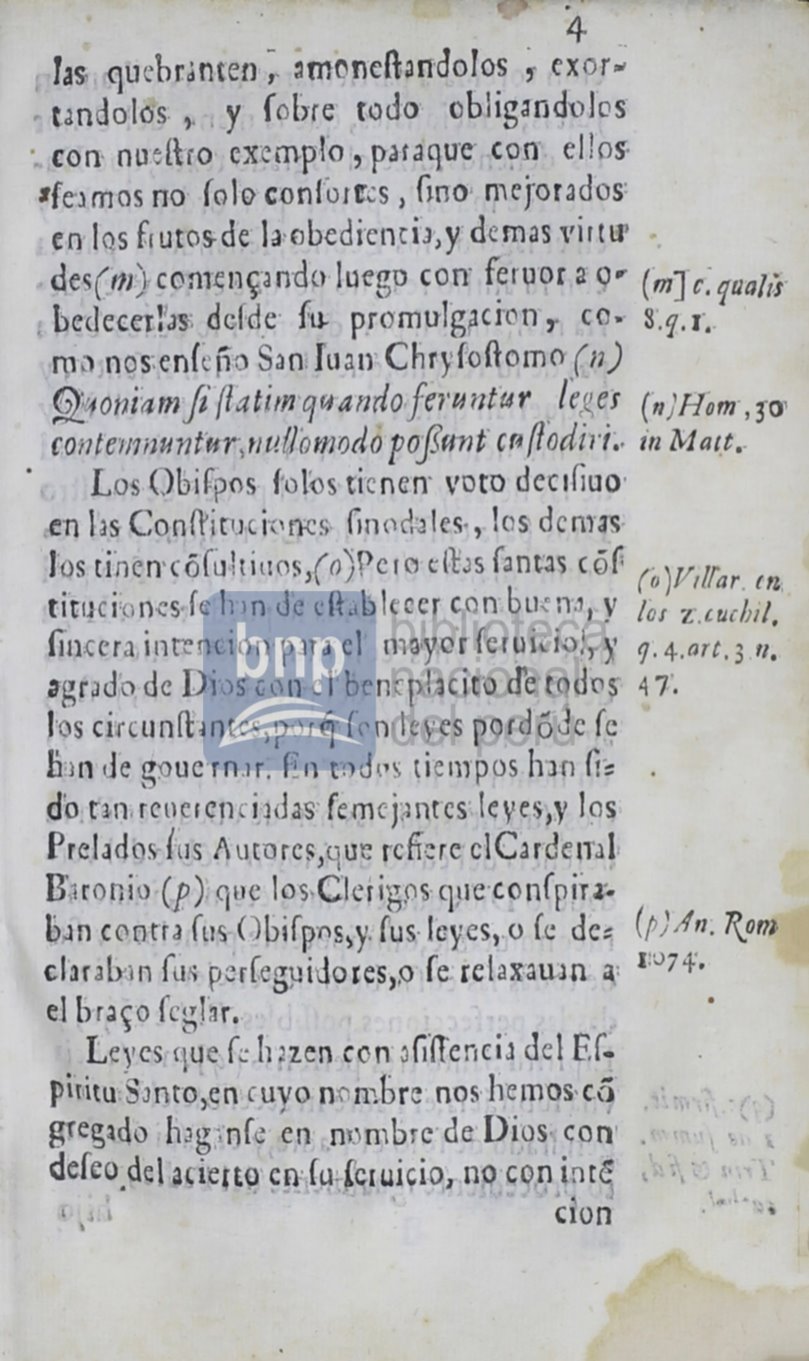 4
las quebranten, amoneſtandolos, exor-
tandolos, y ſobre todo obligandolos
con nueſtro exemplo, paraque con ellos
ſeamos no ſolo conſortes, ſino mejorados
en los frutos de la obediencia, y demas virtu
des (m) començando luego con feruor a o-
bedecerlas deſde ſu promulgacion, co-
mo nos enſeño San Iuan Chryſoſtomo (n)
Quoniam ſi ſtatim quando feruntur leges
contemnuntur, nullomodo poßunt cuſtodiri.
Los Obiſpos ſolos tienen voto deciſiuo
en las Conſtituciones ſinodales, los demas
los tinen cõſultiuos, (o) Pero eſtas ſantas cõſ
tituciones ſe han de eſtablecer con buena, y
ſincera intencion para el mayor ſeruicio, y
agrado de Dios con el beneplacito de todos
los circunſtantes, porq̃ ſon leyes por dõde ſe
han de gouernar. En todos tiempos han ſi-
do tan reuerenciadas ſemejantes leyes, y los
Prelados ſus Autores, que refiere el Cardenal
Baronio (p) que los Clerigos que conſpira-
ban contra ſus Obiſpos, y ſus leyes, o ſe de-
claraban ſus perſeguidores, o ſe relaxauan a
el braço ſeglar.
Leyes que ſe hazen con aſiſtencia del Eſ-
piritu Santo, en cuyo nombre nos hemos cõ
gregado haganſe en nombre de Dios con
deſeo del acierto en ſu ſeruicio, no con intẽ
cion
(m] c. qualis
8. q. 1.
(n) Hom, 30
in Matt.
(o) Villar. en
los 2. cuchil.
q. 4. art. 3 n.
47.
(p) An. Rom
1074.
bnp
biblioteca
nacional
del perú